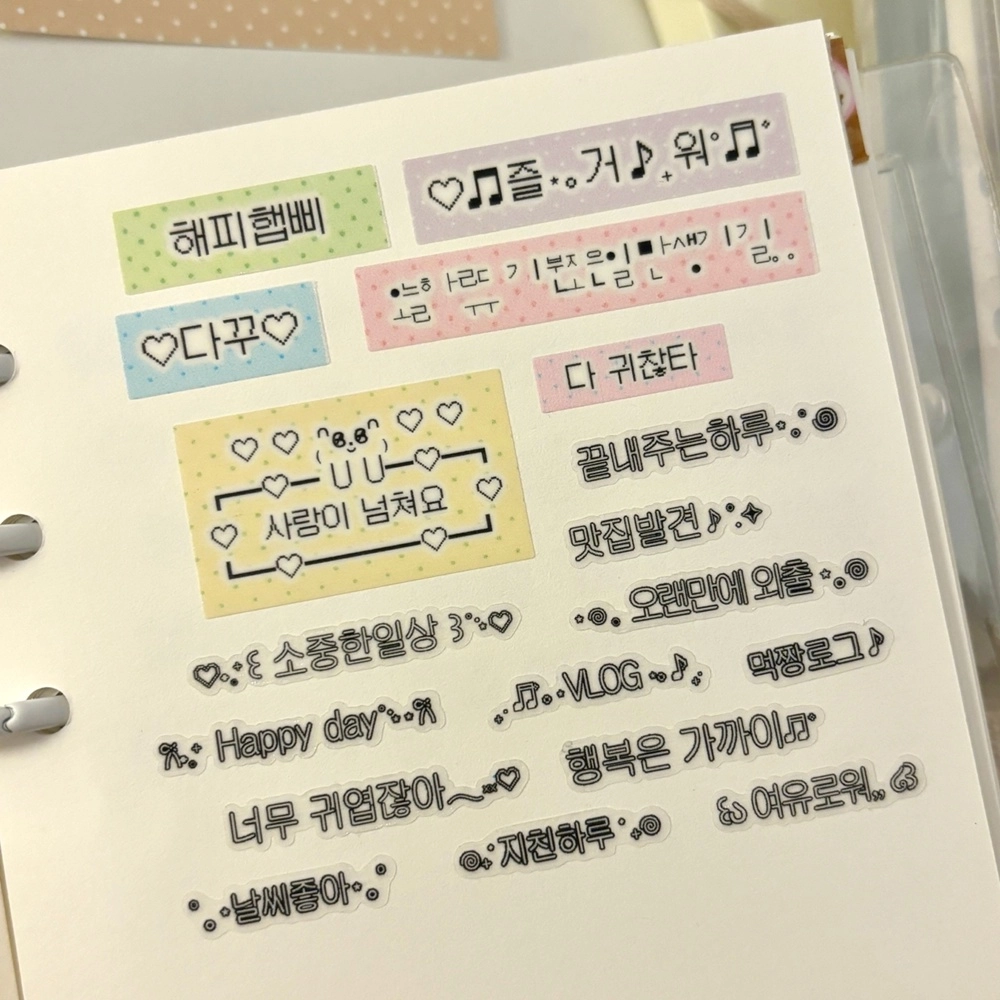 해피햅삐
♡♫즐거♪워♫
♡다꾸♡
다 귀찮타
사랑이 넘쳐요
끝내주는하루
맛집발견♪
오랜만에 외출
소중한일상
VLOG
먹짱로그♪
Happy day
행복은 가까이♫
너무 귀엽잖아~♡
여유로워,,
지친하루
날씨좋아